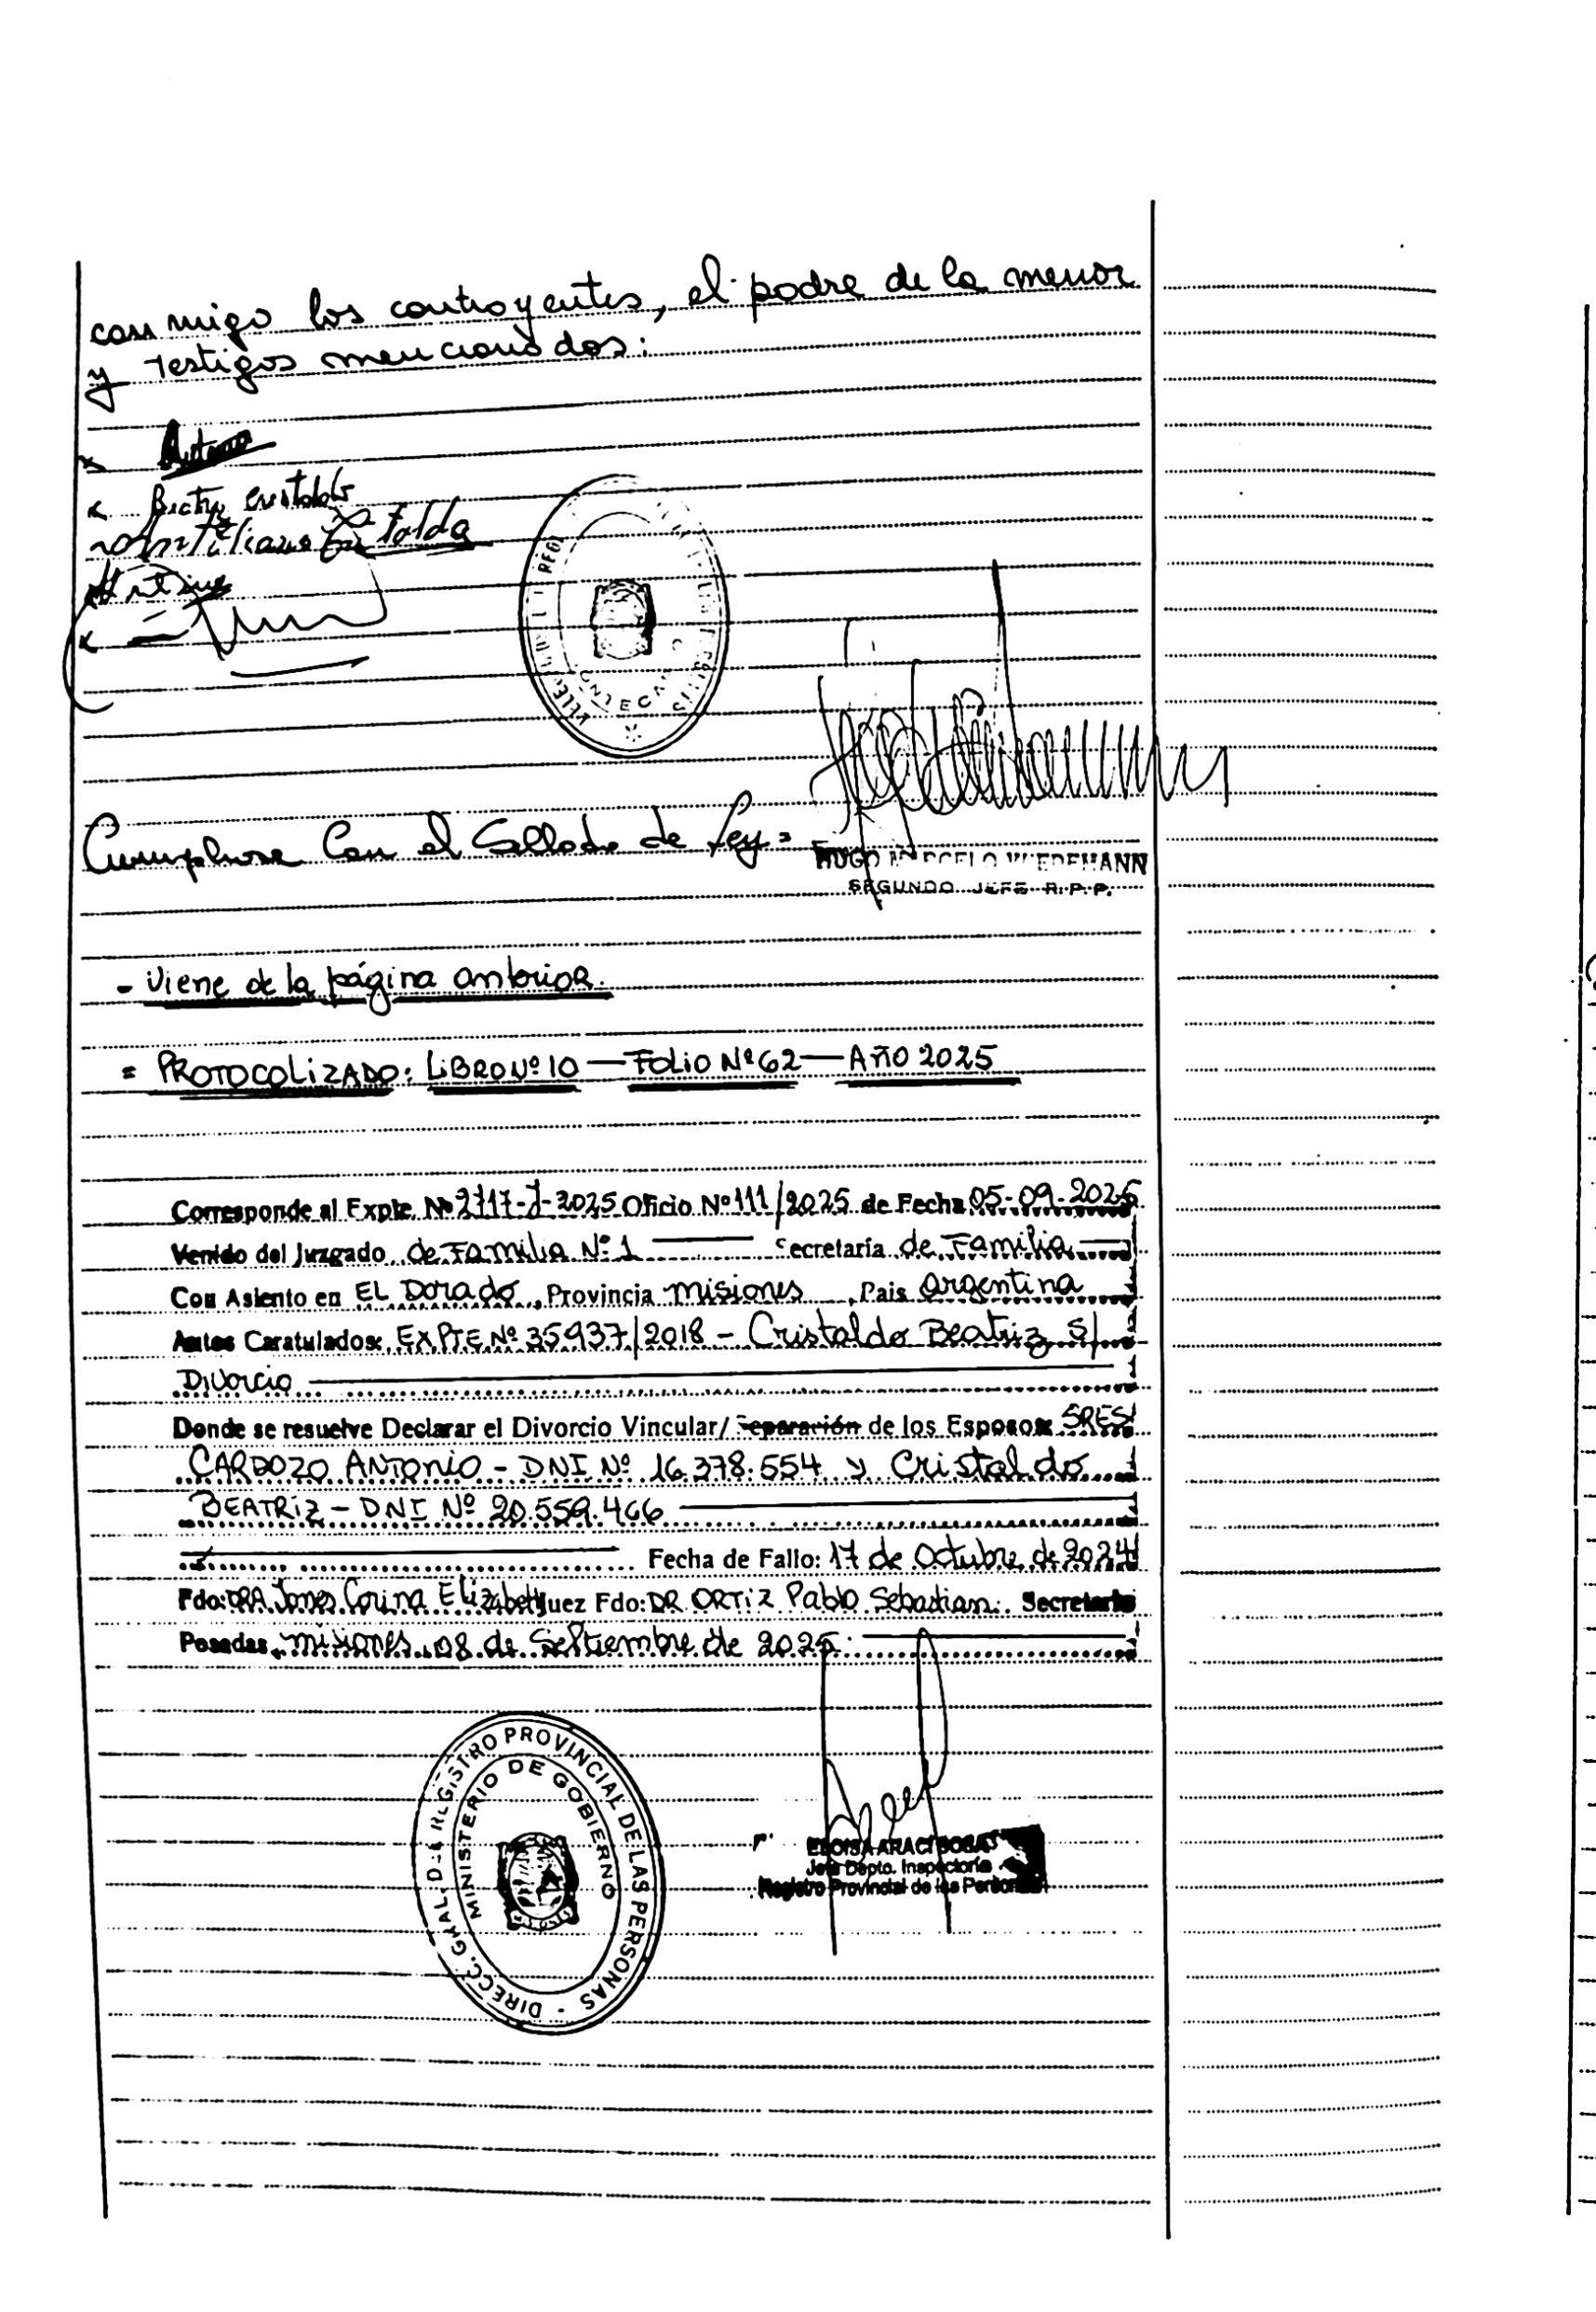 conmigo los contrayentes, el padre de la menor
y testigos mencionados:
Betty Cristaldo
Cumplase Con el Sellado de Ley =
HUGO MARCELO WIEDEMANN
SEGUNDO JEFE R.P.P.
- Viene de la página anterior.
= PROTOCOLIZADO: LIBRO Nº 10 — FOLIO Nº 62 — AÑO 2025
Corresponde al Expte. Nº 2717-J-2025 Oficio Nº 111/2025 de Fecha 05-09-2025
Venido del Juzgado de Familia Nº 1 Secretaría de Familia
Con Asiento en EL Dorado, Provincia misiones, Pais argentina
Autos Caratulados: EXPTE Nº 35937/2018 - Cristaldo Beatriz S/
Divorcio
Donde se resuelve Declarar el Divorcio Vincular/ Separación de los Esposos: SRES
CARDOZO ANTONIO - DNI Nº 16.378.554 y Cristaldo
BEATRIZ - DNI Nº 20.559.466
Fecha de Fallo: 17 de Octubre de 2024
Fdo: DRA Jones Corina Elizabeth Juez Fdo: DR ORTIZ Pablo Sebastian. Secretario
Posadas, misiones 08 de Setiembre de 2025.
DIRECC. GRAL. DEL REGISTRO PROVINCIAL DE LAS PERSONAS -
MINISTERIO DE GOBIERNO
ELOISA ARACI SOSA
Jefa Dpto. Inspectoría
Registro Provincial de las Personas